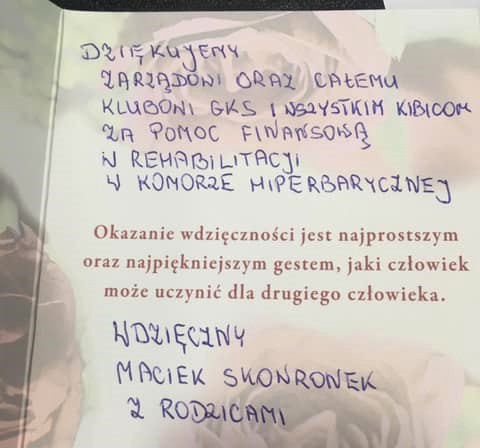 DZIĘKUJEMY
ZARZĄDOWI ORAZ CAŁEMU
KLUBOWI GKS I WSZYSTKIM KIBICOM
ZA POMOC FINANSOWĄ
W REHABILITACJI
W KOMORZE HIPERBARYCZNEJ
Okazanie wdzięczności jest najprostszym
oraz najpiękniejszym gestem, jaki człowiek
może uczynić dla drugiego człowieka.
WDZIĘCZNY
MACIEK SKOWRONEK
Z RODZICAMI